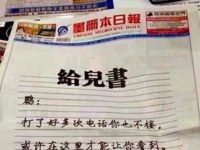 墨爾本日報
CHINESE MELBOURNE DAILY
給兒書
鹏：
打了好多次电话你也不接，
或许在这里才能让你看到。